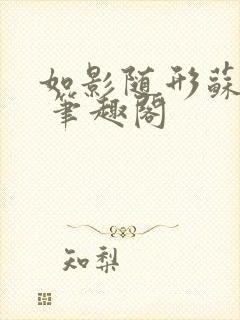 如影随形蘇
筆趣閣
知梨